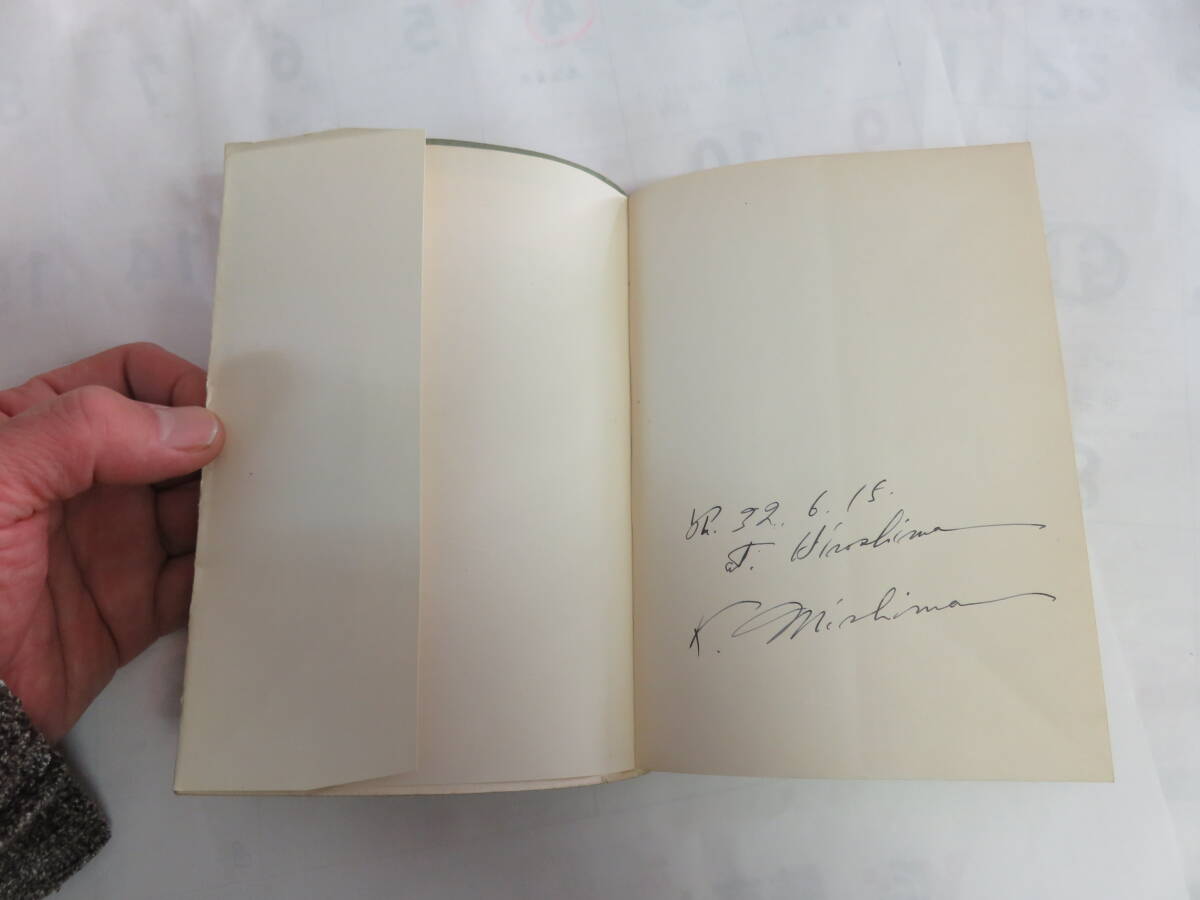 32. 6. 15.
at. Hiroshima
K. Mishima